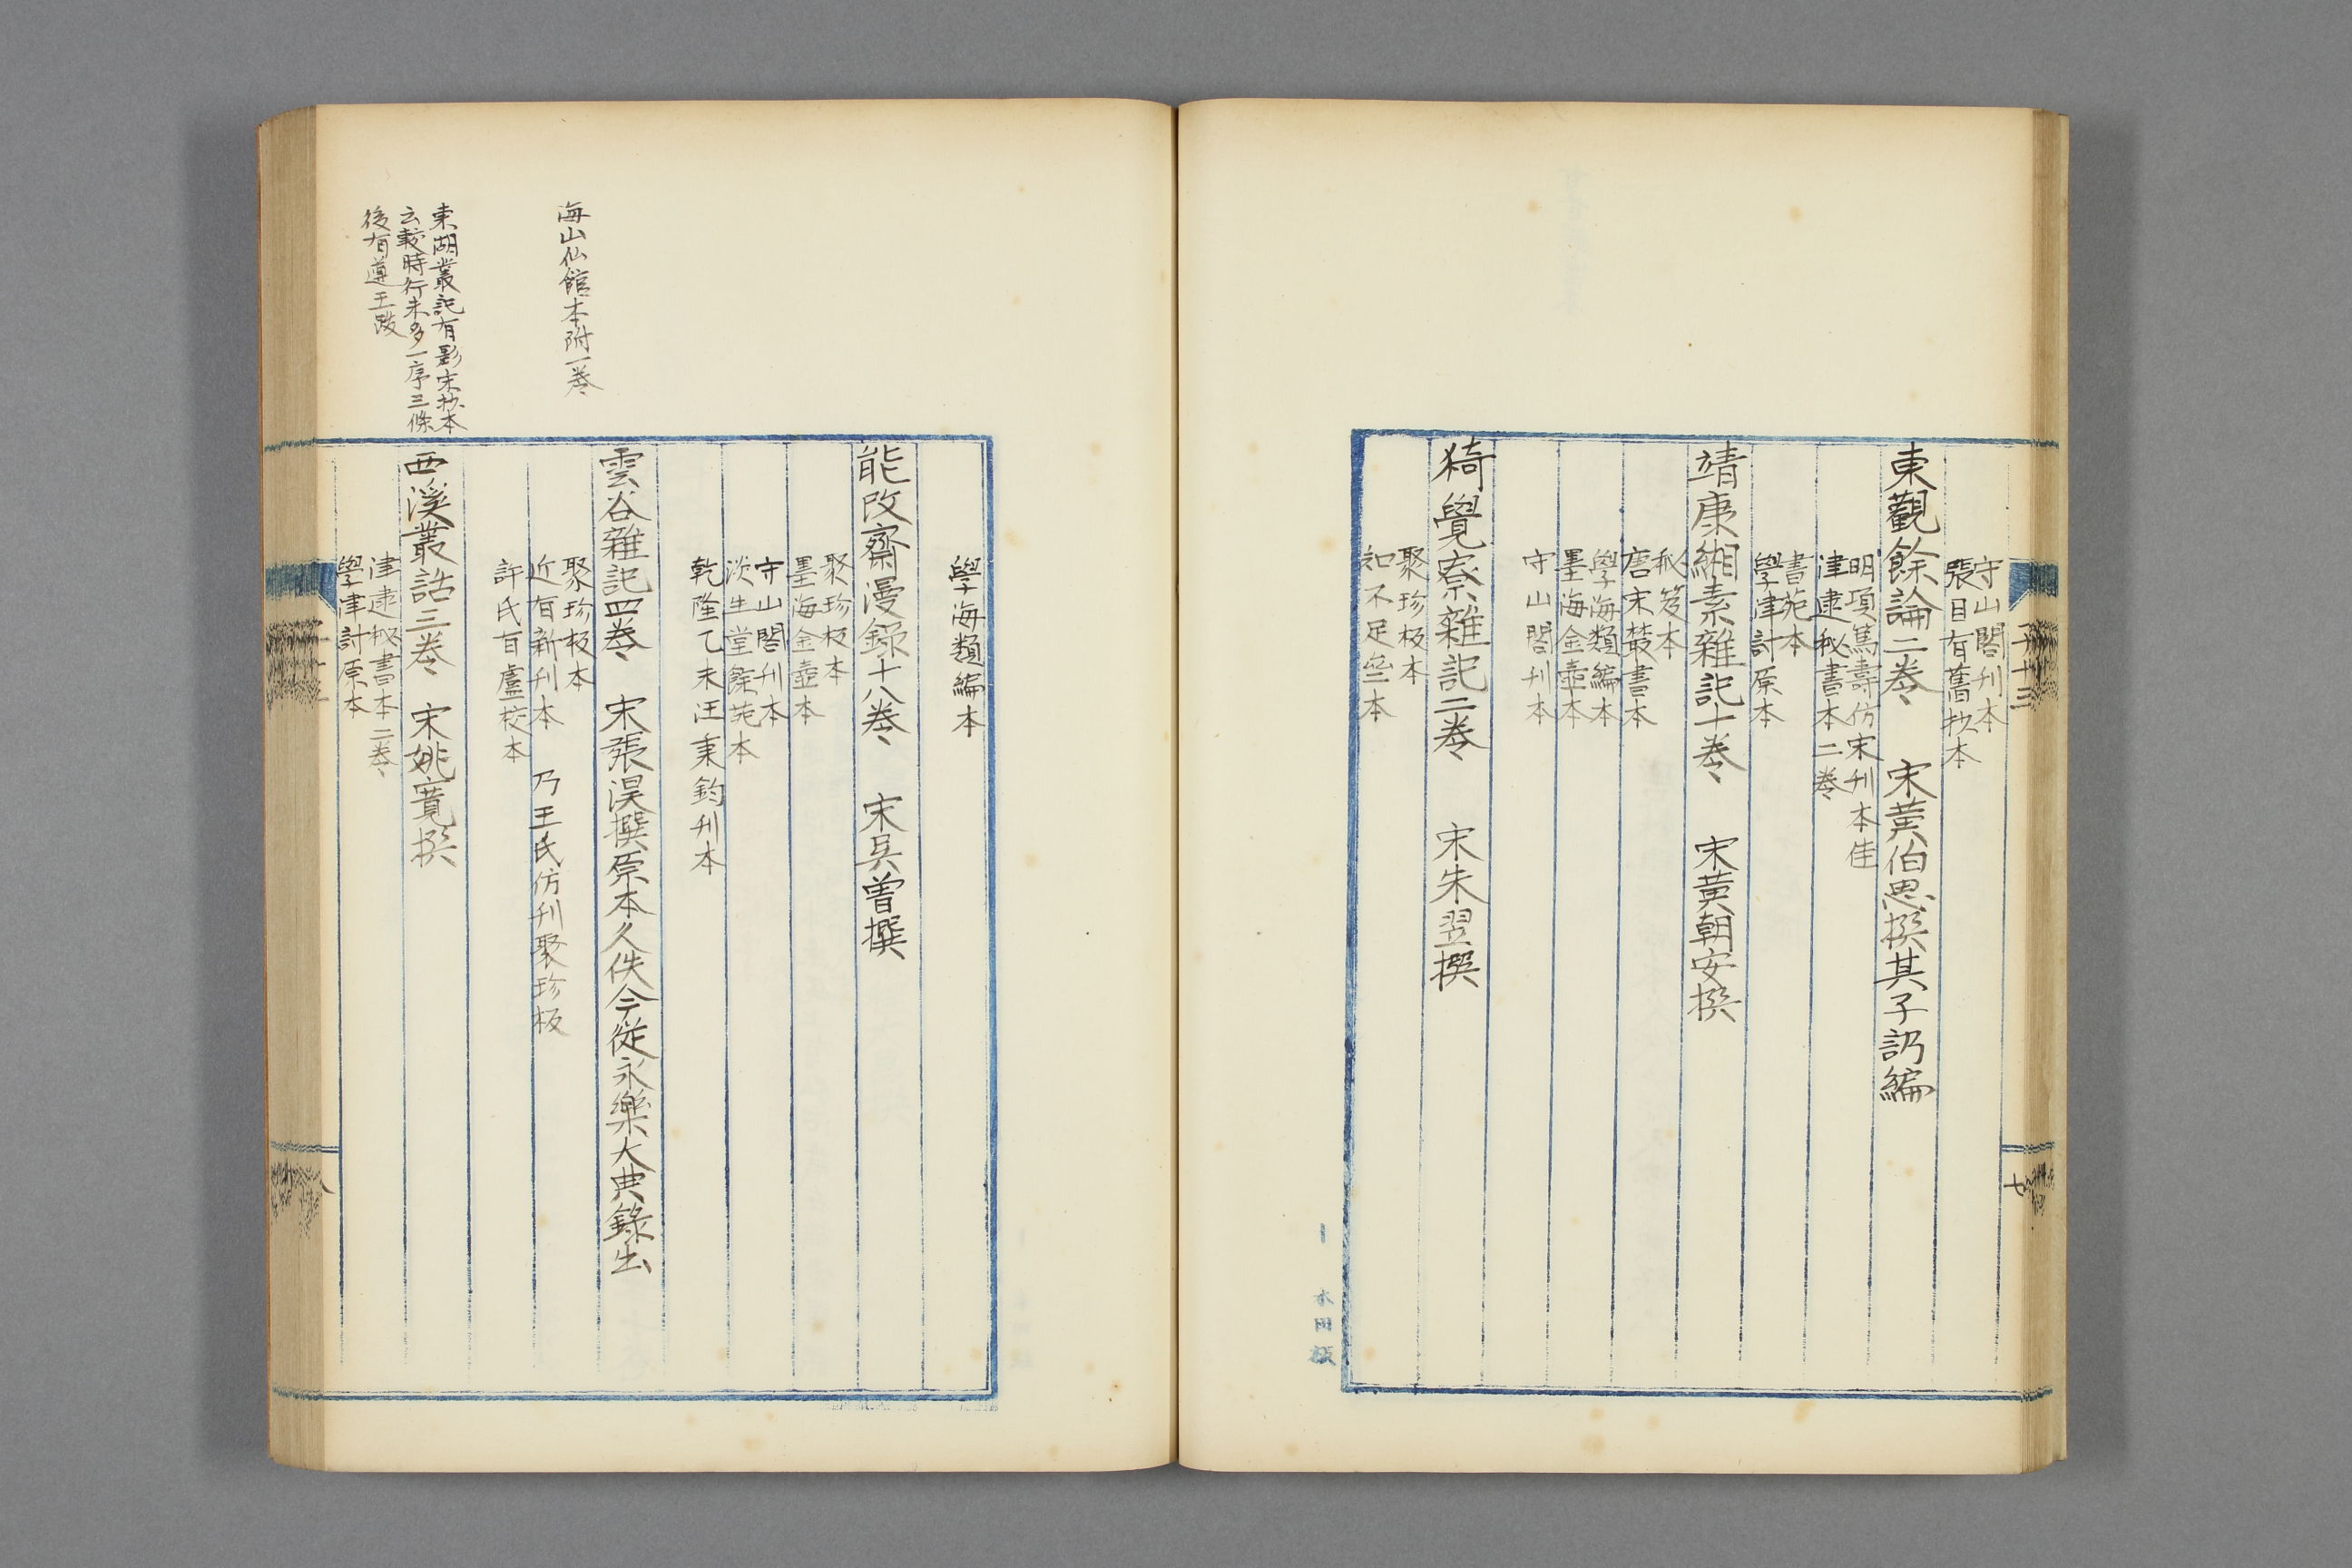 守山閣刊本
張目有舊抄本
東觀餘論二卷　宋黃伯思撰其子訒編
明項篤壽仿宋刊本佳
津逮秘書本二卷
書苑本
學津討原本
靖康緗素雜記十卷　宋黃朝安撰
秘笈本
唐宋叢書本
學海類編本
墨海金壺本
守山閣刊本
猗覺寮雜記二卷　宋朱翌撰
聚珍板本
知不足叁本
本田板
學海類編本
能改齋漫錄十八卷　宋吳曾撰
聚珍板本
墨海金壺本
守山閣刊本
淡生堂餘苑本
乾隆乙未汪秉鈞刊本
海山仙館本附一卷
雲谷雜記四卷　宋張淏撰原本久佚今從永樂大典錄出
聚珍板本
近有新刊本　乃王氏仿刊聚珍板
許氏有盧校本
東湖叢記有影宋抄本
云較時行本多一序三條
後有遵王跋
西溪叢話三卷　宋姚寬撰
津逮秘書本二卷
學津討原本
八